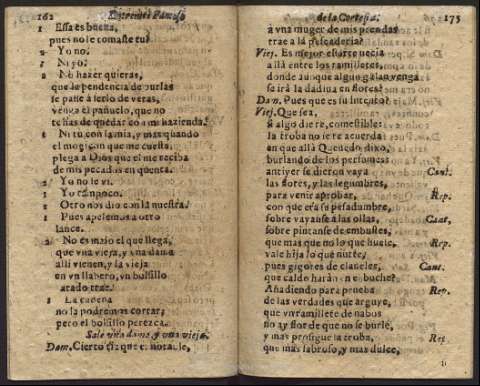 162 Entremes Famoso
1 Essa es buena,
pues no le tomaste tu?
2 Yo no.
1 Ni yo.
2 No hazer quieras,
que la pendencia de burlas
se passe a serlo de veras,
venga el pañuelo, que no
te has de quedar co mi hazienda.
1 Ni tu con la mia, y mas quando
el mogicon que me cuesta,
plega a Dios que el me reciba
de mis pecados en quenta.
2 Yo no le vi.
1 Yo tampoco.
2 Otro nos dio con la nuestra.
1 Pues apelemos a otro
lance.
2 No es malo el que llega,
que vna vieja, y vna dama
alli vienen, y la vieja
en vn llabero, vn bolsillo
atado trae.
1 La cadena
no la podremos cortar,
pero el bolsillo perezca.
Sale vna dama, y vna vieja.
Dam. Cierto tia que es notable,
de la Cortesia. 175
a vna muger de mis prendas
trae a la pescaderia?
Viej. Es mejor estarte necia
allá entre los ramilletes,
donde aunque algun galan venga
se irá la dadiua en flores?
Dam. Pues que es su intento?
Viej. Que sea,
si algo diere, comestible:
la troba no se te acuerda
en que allá Quevedo dixo,
burlando de los perfumes
antiyer se dieron vaya Cant.
las flores, y las legumbres,
para venir a probar, Rep.
con que essa se pesadumbre,
sobre vayanse a las ollas, Cant,
sobre pintanse de embustes,
que mas que no lo que huele, Rep.
vale hija lo que nutre,
pues gigores de claueles, Cant.
que caldo harán en el buche?
Añadiendo para prueba Rep.
de las verdades que arguye,
que vn ramillete de nabos
no ay flor de que no se burle,
y mas prosigue la troba, Rep.
que mas sabroso, y mas dulce,